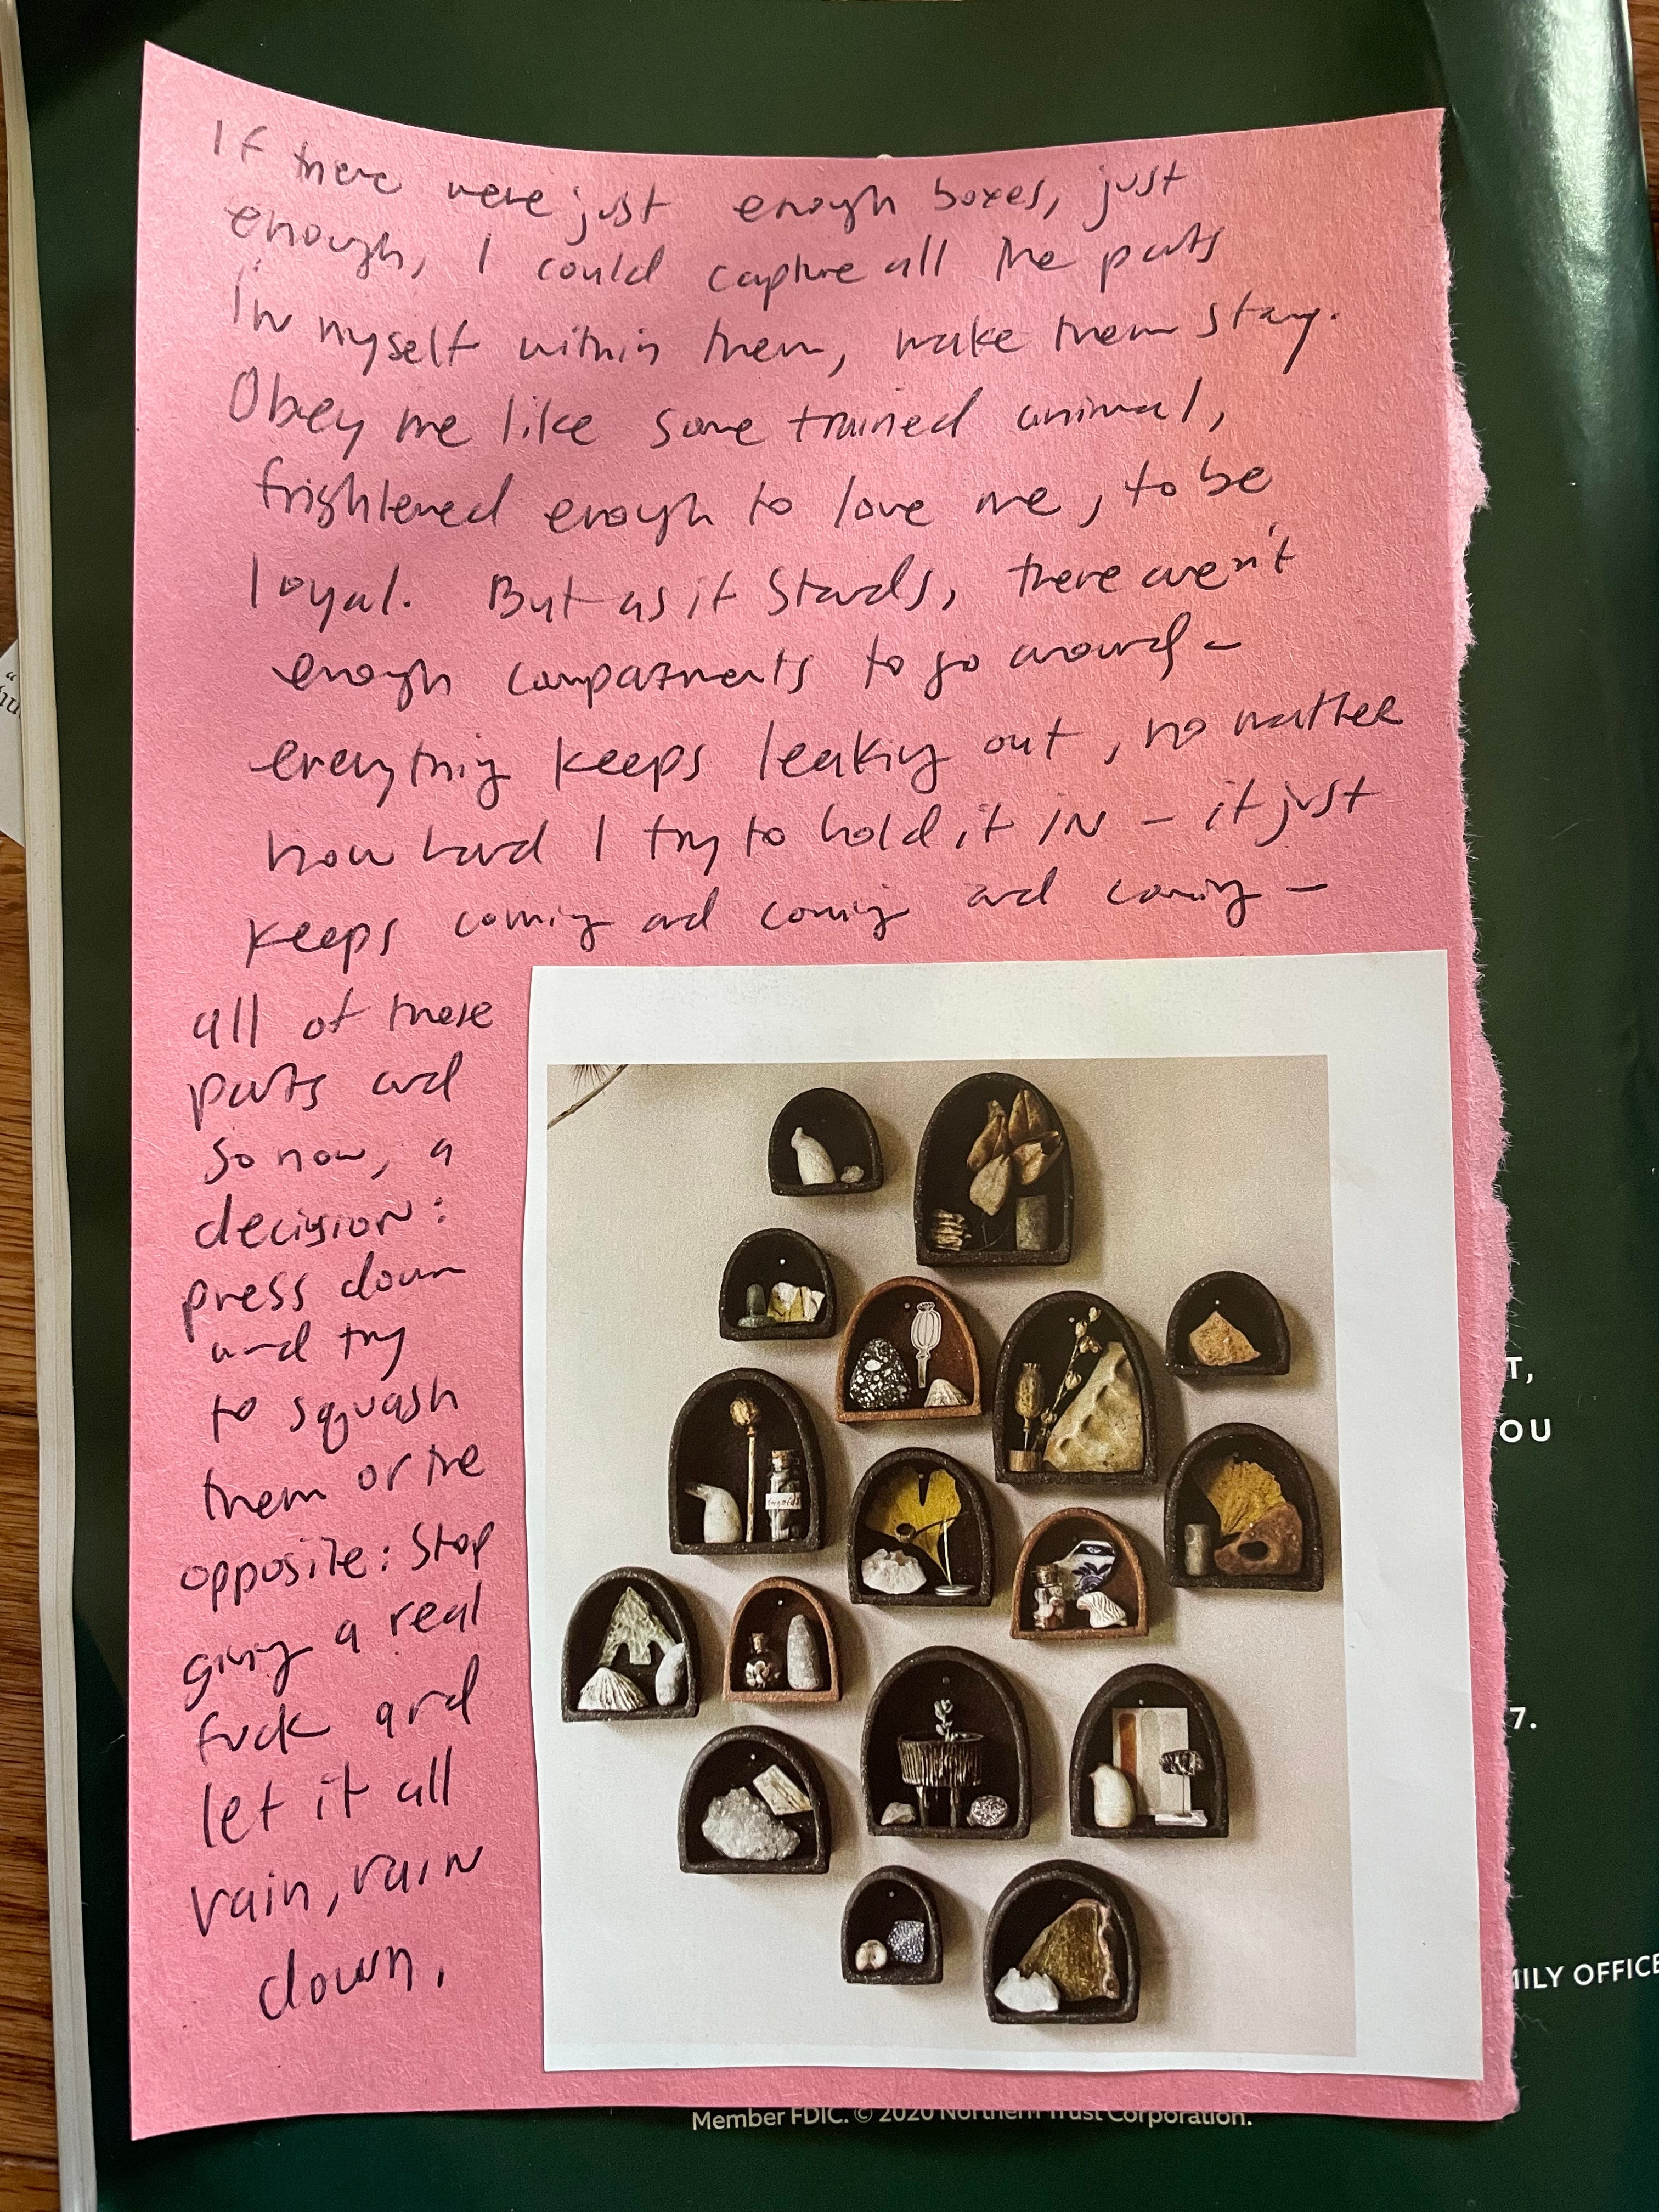 If there were just enough boxes, just
enough, I could capture all the parts
in myself within them, make them stay.
Obey me like some trained animal,
frightened enough to love me, to be
loyal. But as it stands, there aren't
enough compartments to go around –
everything keeps leaking out, no matter
how hard I try to hold it in – it just
keeps coming and coming and coming –
all of these
parts and
so now, a
decision:
press down
and try
to squash
them or the
opposite: Stop
giving a real
fuck and
let it all
rain, rain
down.
T,
OU
7.
MILY OFFICE
Member FDIC. © 2020 Northern Trust Corporation.